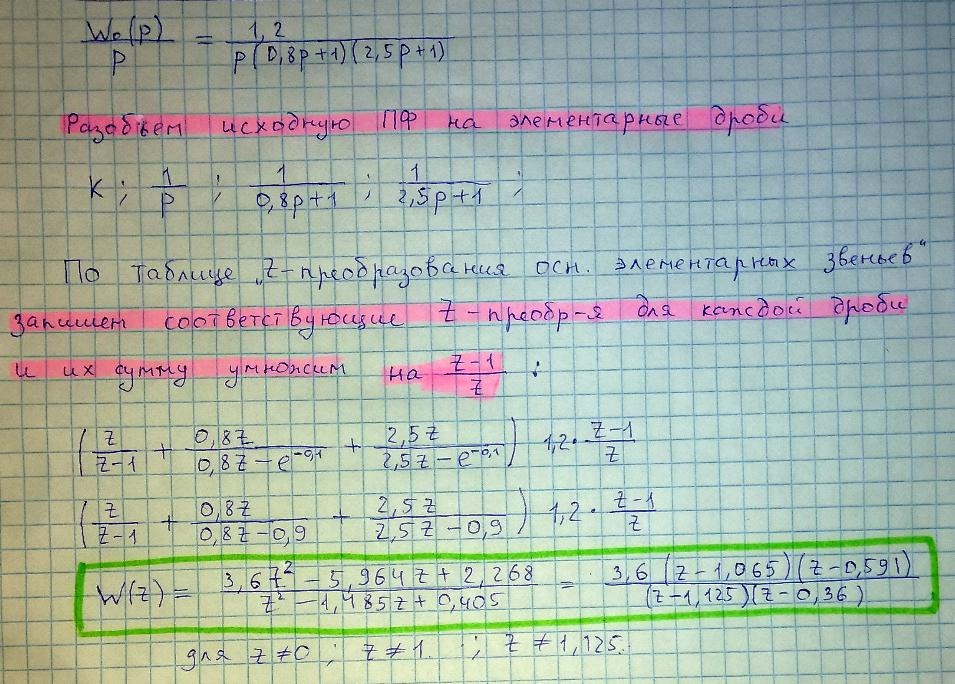 W₀(p)/p = 1,2/(p(0,8p+1)(2,5p+1))
Разобьем исходную ПФ на элементарные дроби
K ; 1/p ; 1/(0,8p+1) ; 1/(2,5p+1) ;
По таблице „Z-преобразования осн. элементарных звеньев“
Запишем соответствующие Z-преобр-я для каждой дроби
и их сумму умножим на (z-1)/z :
(z/(z-1) + 0,8z/(0,8z-e^(-0,1)) + 2,5z/(2,5z-e^(-0,1))) 1,2·(z-1)/z
(z/(z-1) + 0,8z/(0,8z-0,9) + 2,5z/(2,5z-0,9)) 1,2·(z-1)/z
W(z) = (3,6z²-5,964z+2,268)/(z²-1,485z+0,405) = 3,6(z-1,065)(z-0,591)/((z-1,125)(z-0,36))
для z≠0 ; z≠1. ; z≠1,125.